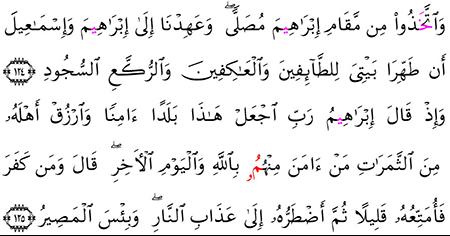 وَٱتَّخَذُواْ مِن مَّقَامِ إِبۡرَٰهِـۧمَ مُصَلّٗىۖ وَعَهِدۡنَا إِلَىٰ إِبۡرَٰهِـۧمَ وَإِسۡمَـٰعِيلَ
أَن طَهِّرَا بَيۡتِي لِلطَّآئِفِينَ وَٱلۡعَٰكِفِينَ وَٱلرُّكَّعِ ٱلسُّجُودِ ١٢٤
وَإِذۡ قَالَ إِبۡرَٰهِـۧمُ رَبِّ ٱجۡعَلۡ هَٰذَا بَلَدًا ءَامِنٗا وَٱرۡزُقۡ أَهۡلَهُۥ
مِنَ ٱلثَّمَرَٰتِ مَنۡ ءَامَنَ مِنۡهُمُۥ بِٱللَّهِ وَٱلۡيَوۡمِ ٱلۡأٓخِرِۖ قَالَ وَمَن كَفَرَ
فَأُمَتِّعُهُۥ قَلِيلٗا ثُمَّ أَضۡطَرُّهُۥٓ إِلَىٰ عَذَابِ ٱلنَّارِۖ وَبِئۡسَ ٱلۡمَصِيرُ ١٢٥